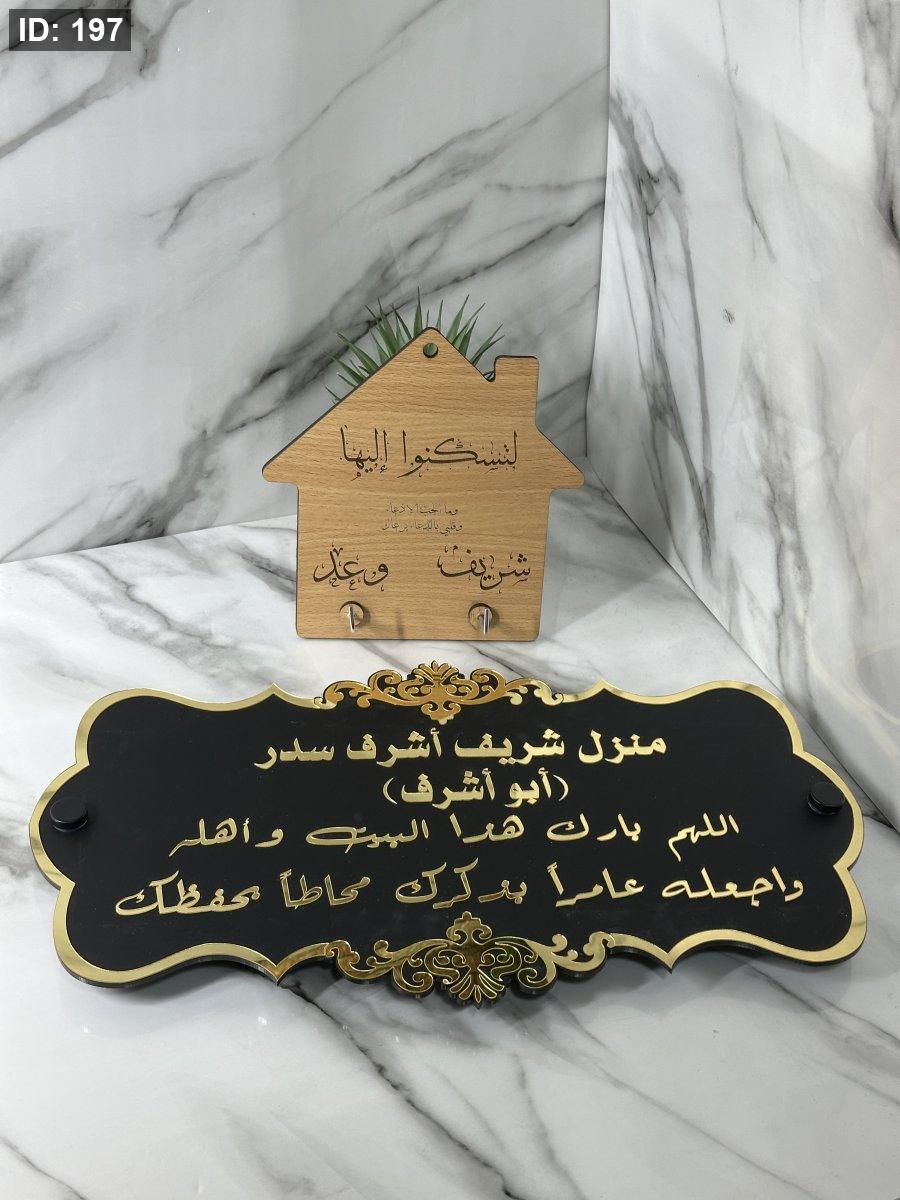 ID: 197
لتسكنوا إليها
وما الحب إلا دعاء
وقلبي بالدعاء يرعاك
شريف وعد
منزل شريف أشرف سدر
(أبو أشرف)
اللهم بارك هذا البيت وأهله
واجعله عامراً بذكرك محاطاً بحفظك